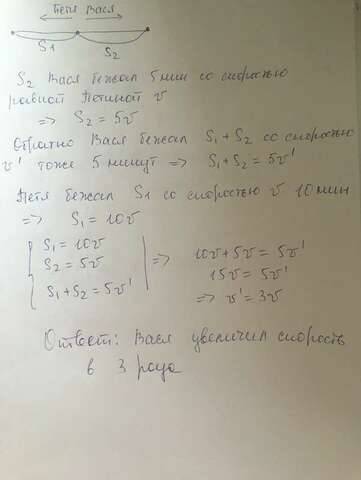 Петя Вася
S1 S2
S2 Вася бежал 5 мин со скоростью
равной Петиной v
=> S2 = 5v
Обратно Вася бежал S1 + S2 со скоростью
v' тоже 5 минут => S1 + S2 = 5v'
Петя бежал S1 со скоростью v 10 мин
=> S1 = 10v
S1 = 10v
S2 = 5v
S1 + S2 = 5v'
=> 10v + 5v = 5v'
15v = 5v'
=> v' = 3v
Ответ: Вася увеличил скорость
в 3 раза